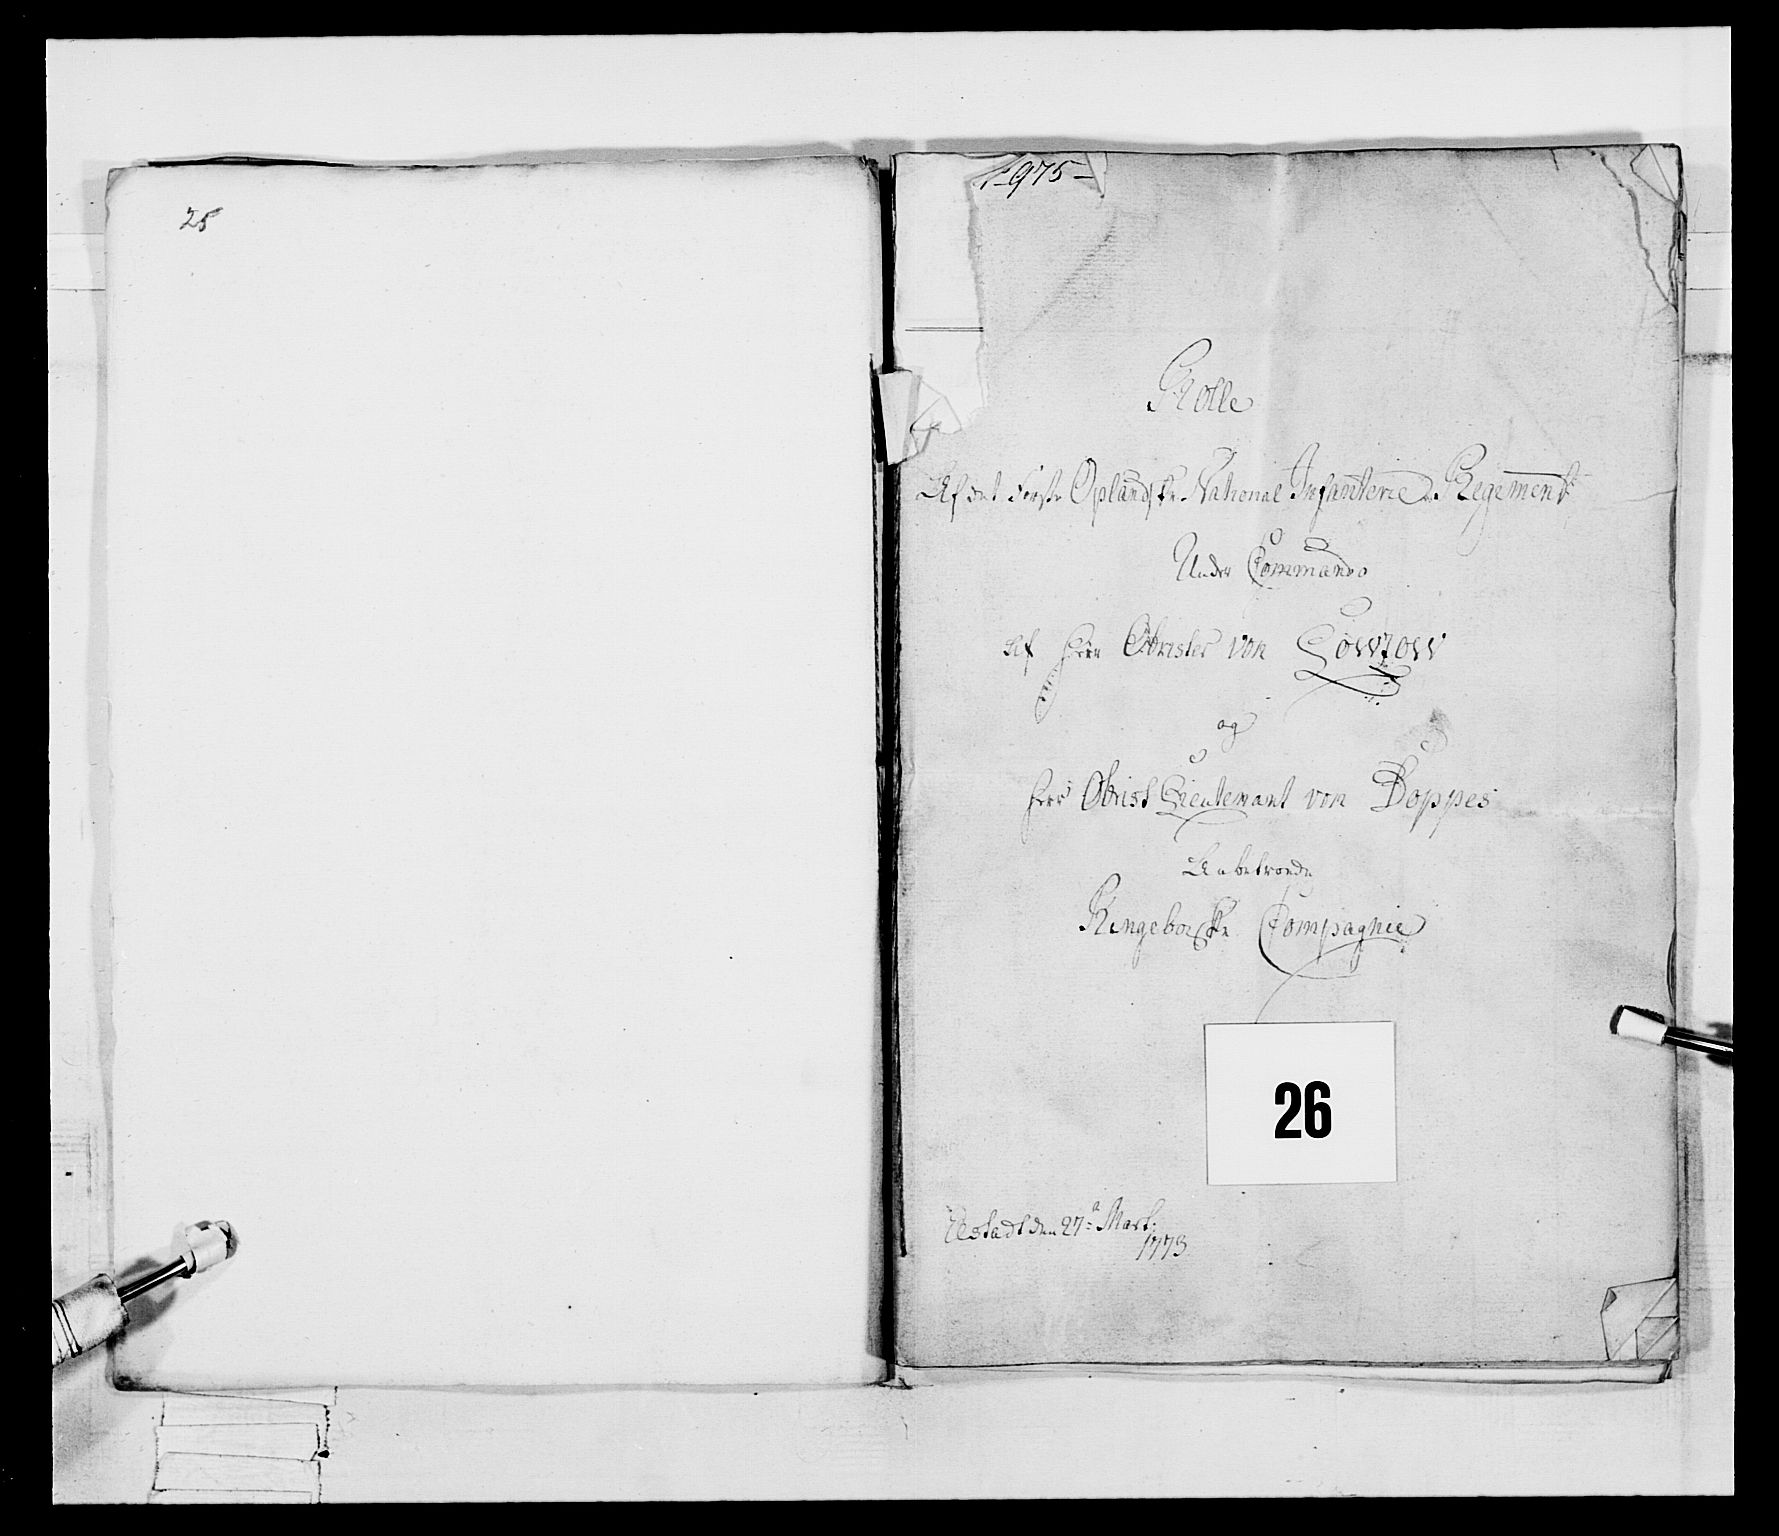 25
1-975-
Rolle
Af det Første Oplandske National Infanterie Regement
Under Commando
Af Herr Obrister von Lowzow
og
Herr Obrist Lieutenant von Coppes
Anbetroede
Ringeboeske Compagnie
26
Elstad den 27de Mart:
1773